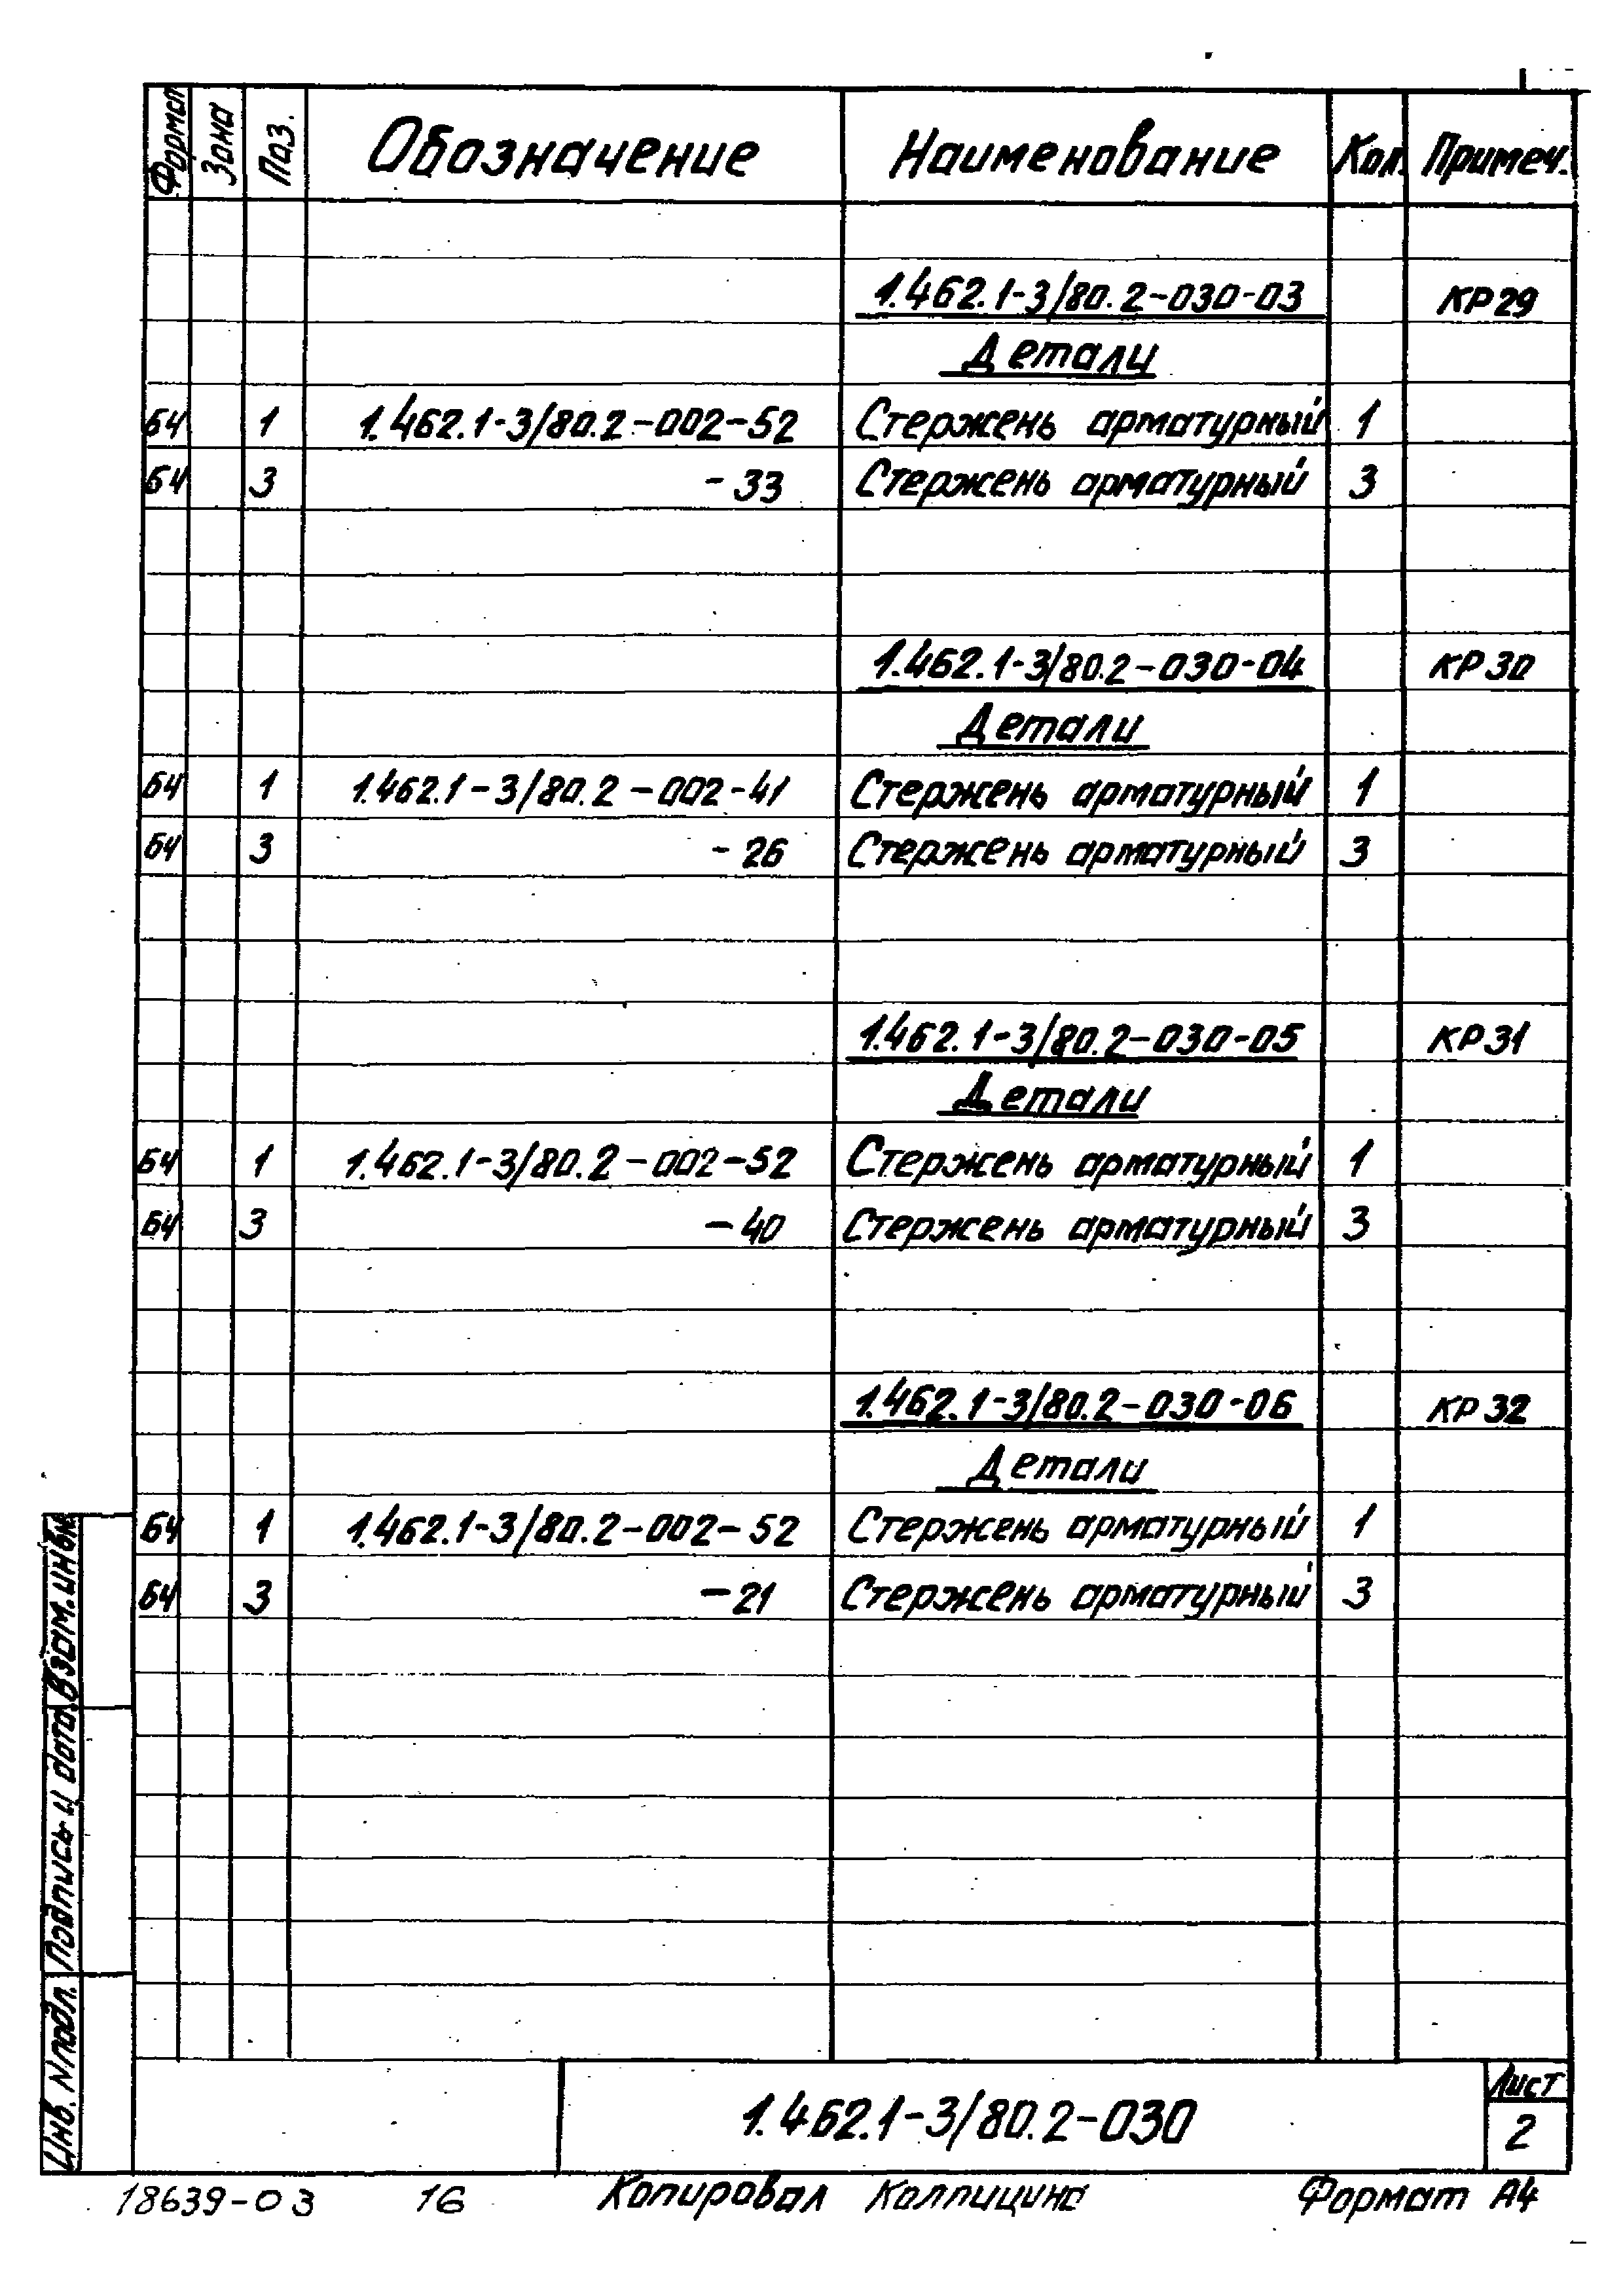 Формат Зона Поз. Обозначение Наименование Кол. Примеч.
1.462.1-3/80.2-030-03 КР29
Детали
БЧ 1 1.462.1-3/80.2-002-52 Стержень арматурный 1
БЧ 3 -33 Стержень арматурный 3
1.462.1-3/80.2-030-04 КР30
Детали
БЧ 1 1.462.1-3/80.2-002-41 Стержень арматурный 1
БЧ 3 -26 Стержень арматурный 3
1.462.1-3/80.2-030-05 КР31
Детали
БЧ 1 1.462.1-3/80.2-002-52 Стержень арматурный 1
БЧ 3 -40 Стержень арматурный 3
1.462.1-3/80.2-030-06 КР32
Детали
БЧ 1 1.462.1-3/80.2-002-52 Стержень арматурный 1
БЧ 3 -21 Стержень арматурный 3
Взам. инв.
Подпись и дата
Инв. N подл.
1.462.1-3/80.2-030
Лист
2
18639-03 16 Копировал Колпицина Формат А4